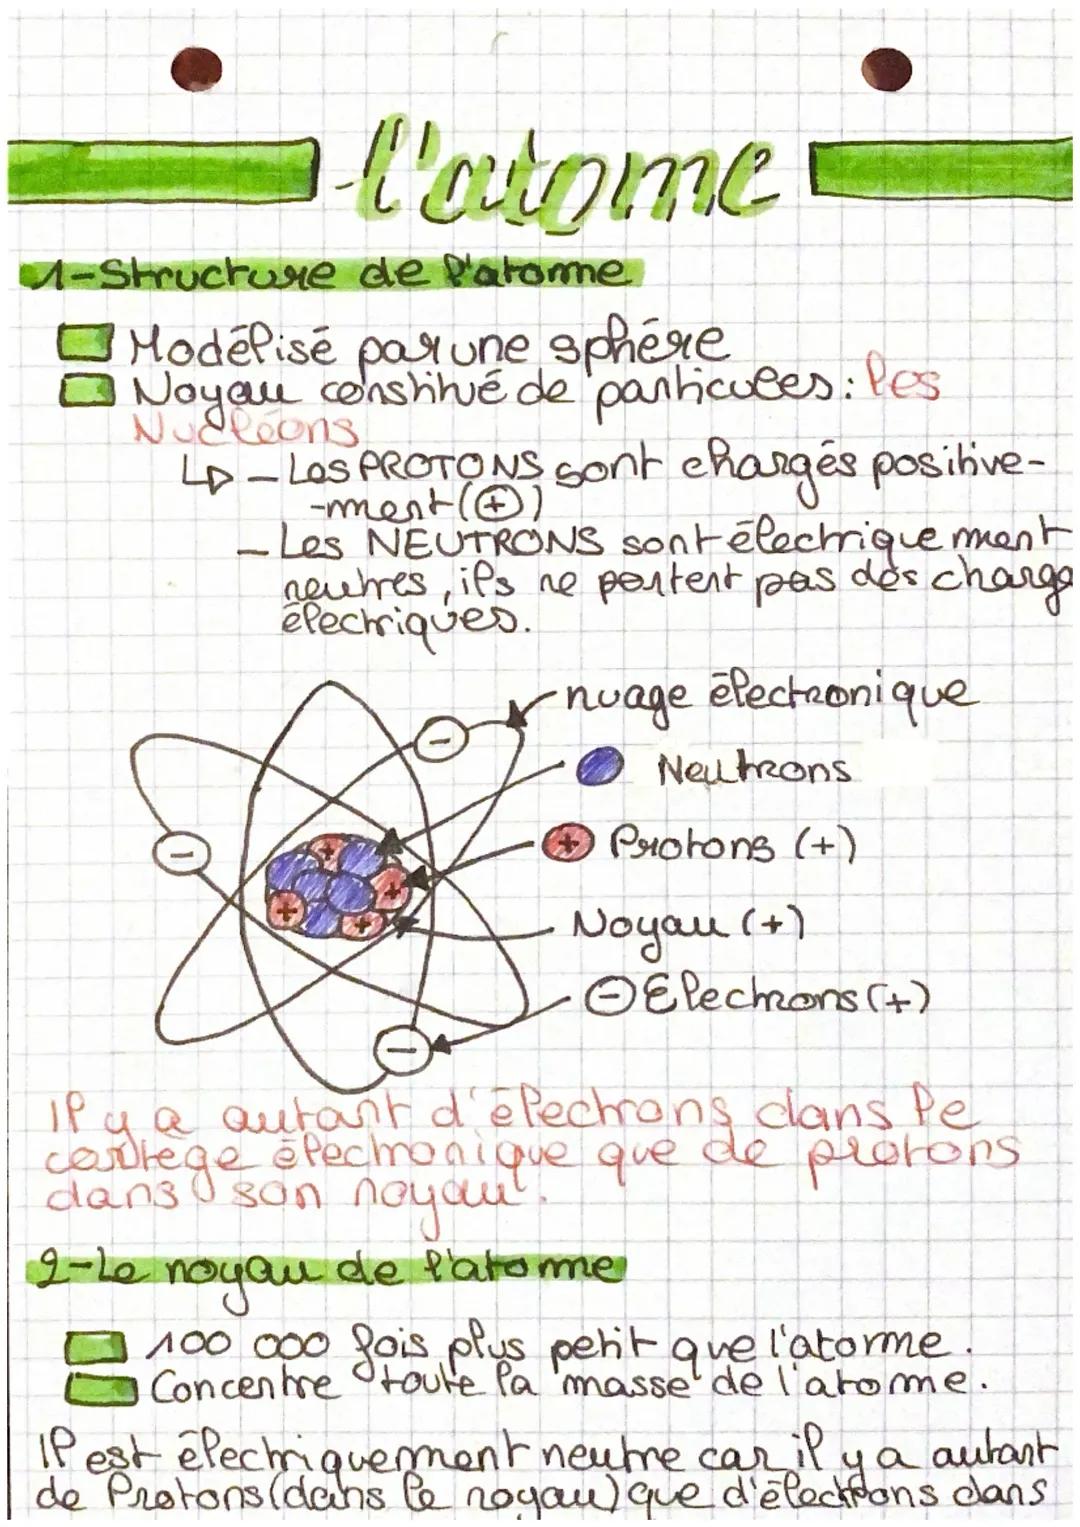 l'atome
1-Structure de l'atome
Modélisé par une sphére
Noyau constitué de particules: les
Nucléons
↳ - Les PROTONS sont chargés positive-
-ment (+)
- Les NEUTRONS sont électriquement
neutres, ils ne portent pas des charge
électriques.
nuage électronique
Neutrons
+ Protons (+)
Noyau (+)
- Electrons (+)
-
-
-
+
+
+
+
Il y a autant d'électrons dans le
cortège électronique que de protons
dans son noyau.
2-Le noyau de l'atome
100 000 fois plus petit que l'atome.
Concentre toute la masse de l'atome.
Il est électriquement neutre car il y a autant
de Protons (dans le noyau) que d'électrons dans